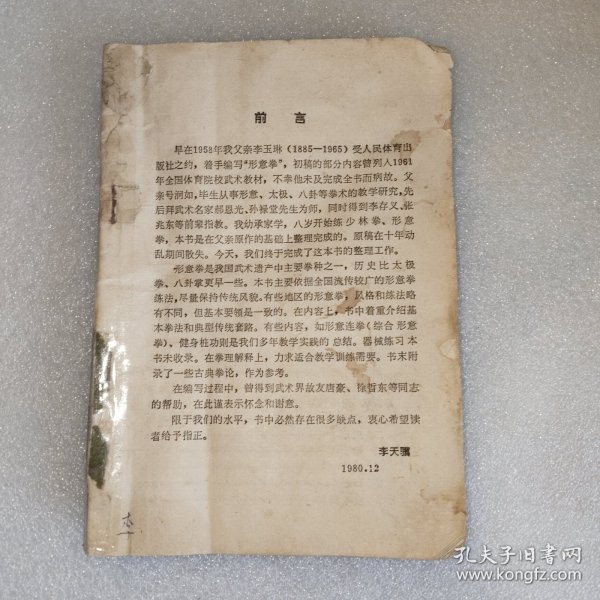 前 言
早在1958年我父亲李玉琳(1885—1965)受人民体育出
版社之约,着手编写“形意拳”,初稿的部分内容曾列入1961
年全国体育院校武术教材,不幸他未及完成全书而病故。父
亲号润如,毕生从事形意、太极、八卦等拳术的教学研究,先
后拜武术名家郝恩光、孙禄堂先生为师,同时得到李存义、张
兆东等前辈指教。我幼承家学,八岁开始练少林拳、形意
拳,本书是在父亲原作的基础上整理完成的。原稿在十年动
乱期间散失。今天,我们终于完成了这本书的整理工作。
形意拳是我国武术遗产中主要拳种之一,历史比太极
拳、八卦掌更早一些。本书主要依据全国流传较广的形意拳
练法,尽量保持传统风貌。有些地区的形意拳,风格和练法略
有不同,但基本要领是一致的。在内容上,书中着重介绍基
本拳法和典型传统套路。有些内容,如形意连拳(综合形意
拳)、健身桩功则是我们多年教学实践的总结。器械练习本
书未收录。在拳理解释上,力求适合教学训练需要。书末附
录了一些古典拳论,作为参考。
在编写过程中,曾得到武术界故友唐豪、徐哲东等同志
的帮助,在此谨表示怀念和谢意。
限于我们的水平,书中必然存在很多缺点,衷心希望读
者给予指正。
李天骥
1980.12
孔夫子旧书网
www.kongfz.com